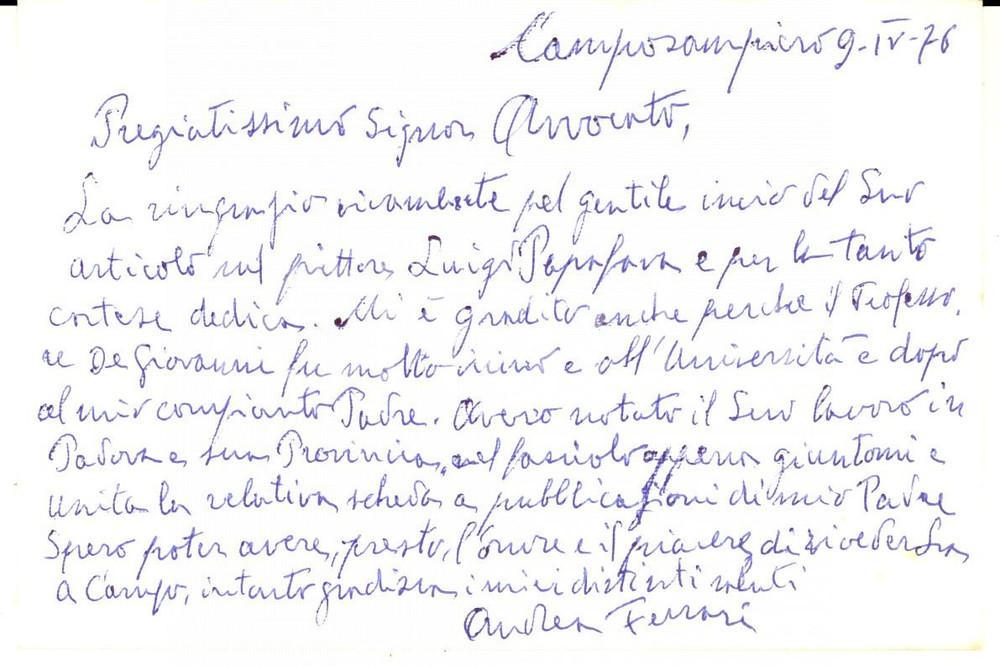 Camposampiero 9-IV-76
Pregiatissimo Signor Avvocato,
La ringrazio vivamente pel gentile invio del Suo
articolo sul pittore Luigi Papafava e per la tanto
cortese dedica. Mi è gradito anche perchè il Professo-
re De Giovanni fu molto vicino e all'Università e dopo
al mio compianto Padre. Avevo notato il Suo lavoro in
Padova e sua Provincia, nel fascicolo appena giuntomi e
unita la relativa scheda a pubblicazioni di mio Padre
Spero poter avere, presto, l'onore e il piacere di riveder La
a Campo, intanto gradisca i miei distinti saluti
Andrea Ferrari